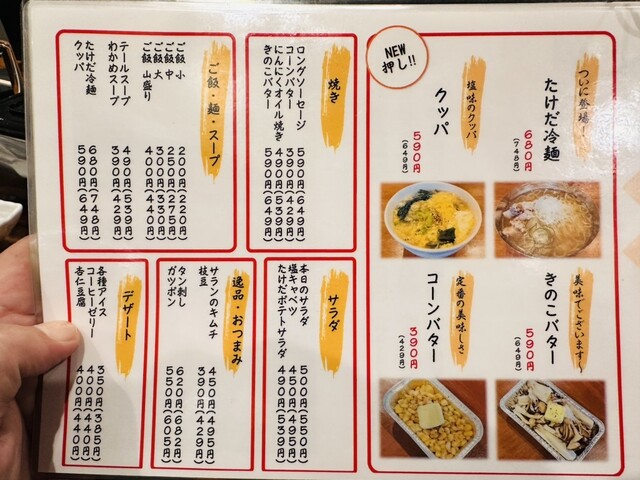 NEW
押し!!
ついに登場!
たけだ冷麺
680円
(748円)
塩味のクッパ
クッパ
590円
(649円)
美味でございます〜
きのこバター
590円
(649円)
定番の美味しさ
コーンバター
390円
(429円)
焼き
ロングソーセージ 590円(649円)
コーンバター 390円(429円)
にんにくオイル焼き 490円(539円)
きのこバター 590円(649円)
ご飯・麺・スープ
ご飯 小 200円(220円)
ご飯 中 250円(275円)
ご飯 大 300円(330円)
ご飯 山盛り 400円(440円)
テールスープ 490円(539円)
わかめスープ 390円(429円)
たけだ冷麺 680円(748円)
クッパ 590円(649円)
サラダ
本日のサラダ 500円(550円)
塩キャベツ 450円(495円)
たけだポテトサラダ 490円(539円)
逸品・おつまみ
サランのキムチ 450円(495円)
枝豆 390円(429円)
タン刺し 620円(682円)
ガツポン 550円(605円)
デザート
各種アイス 350円(385円)
コーヒーゼリー 400円(440円)
杏仁豆腐 400円(440円)